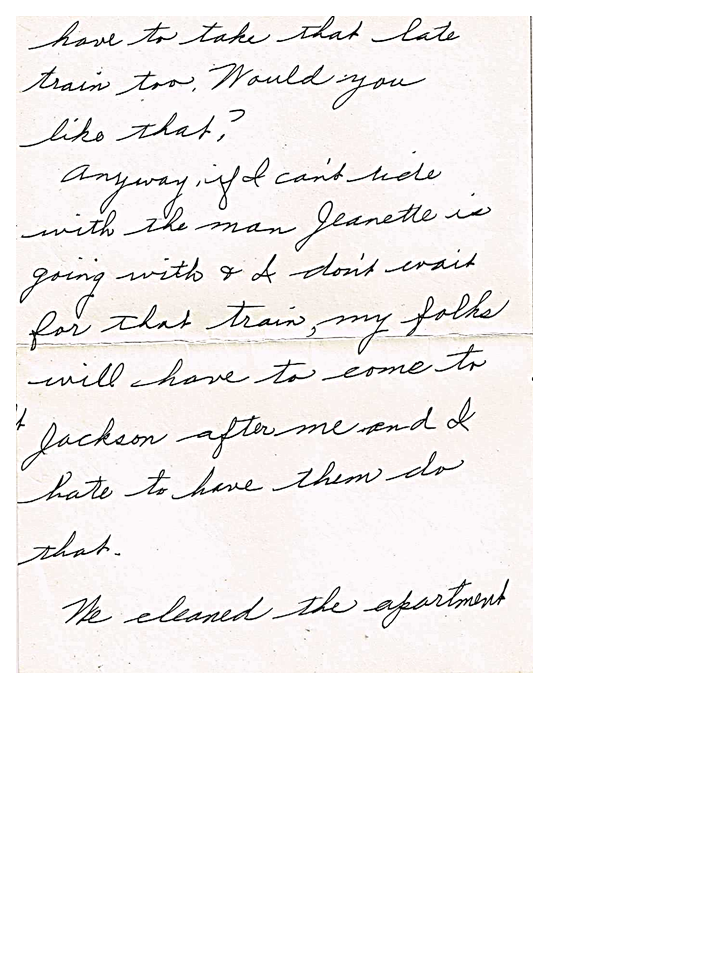 have to take that late
train too. Would you
like that?
Anyway, if I can't ride
with the man Jeanette is
going with & I don't wait
for that train, my folks
will have to come to
Jackson after me and I
hate to have them do
that.
We cleaned the apartment